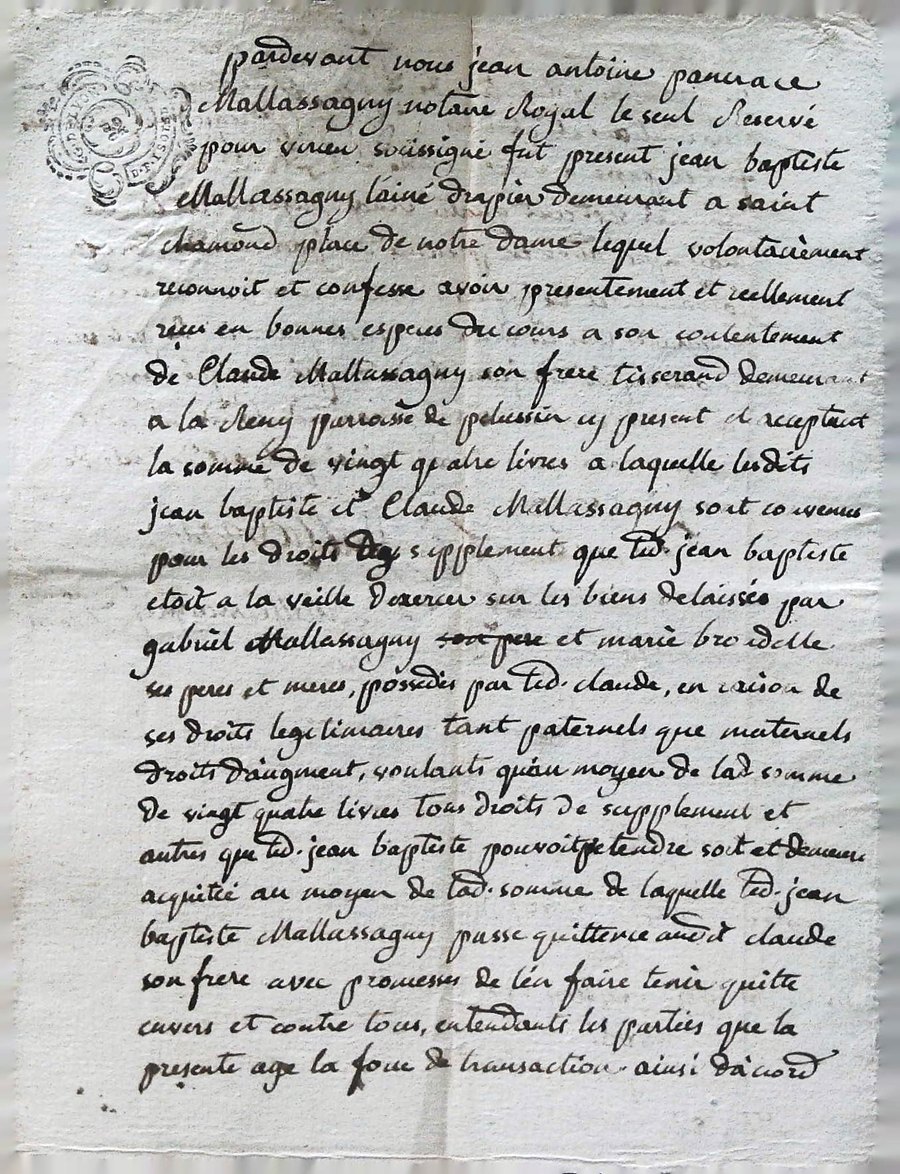 pardevant nous jean antoine pancrace
Mallassagny notaire Royal le seul Reservé
pour virieu soussigné fut present jean baptiste
Mallassagny lainé drapier demeurant a saint
chamond place de notre dame lequel volontairement
reconnoit et confesse avoir presentement et reellement
reçu en bonnes especes du cours a son contentement
de Claude Mallassagny son frere tisserand demeurant
a la parroisse de pelussin cy present et acceptant
la somme de vingt quatre livres a laquelle lesdits
jean baptiste et Claude Mallassagny sont convenus
pour les droits de supplement que led. jean baptiste
etoit a la veille dexercer sur les biens delaissés par
gabriel Mallassagny son pere et marie
ses peres et meres, possedés par led. claude, en raison de
ses droits legitimaires tant paternels que maternels
droits d'augment, voulants qu'au moyen de lad. somme
de vingt quatre livres tous droits de supplement et
autres que led. jean baptiste pouvoit pretendre soit et demeure
acquitté au moyen de lad. somme de laquelle led. jean
baptiste Mallassagny passe quittence audit claude
son frere avec promesses de l'en faire tenir quitte
envers et contre tous, entendants les parties que la
presente aye la force de transaction ainsi d'acord